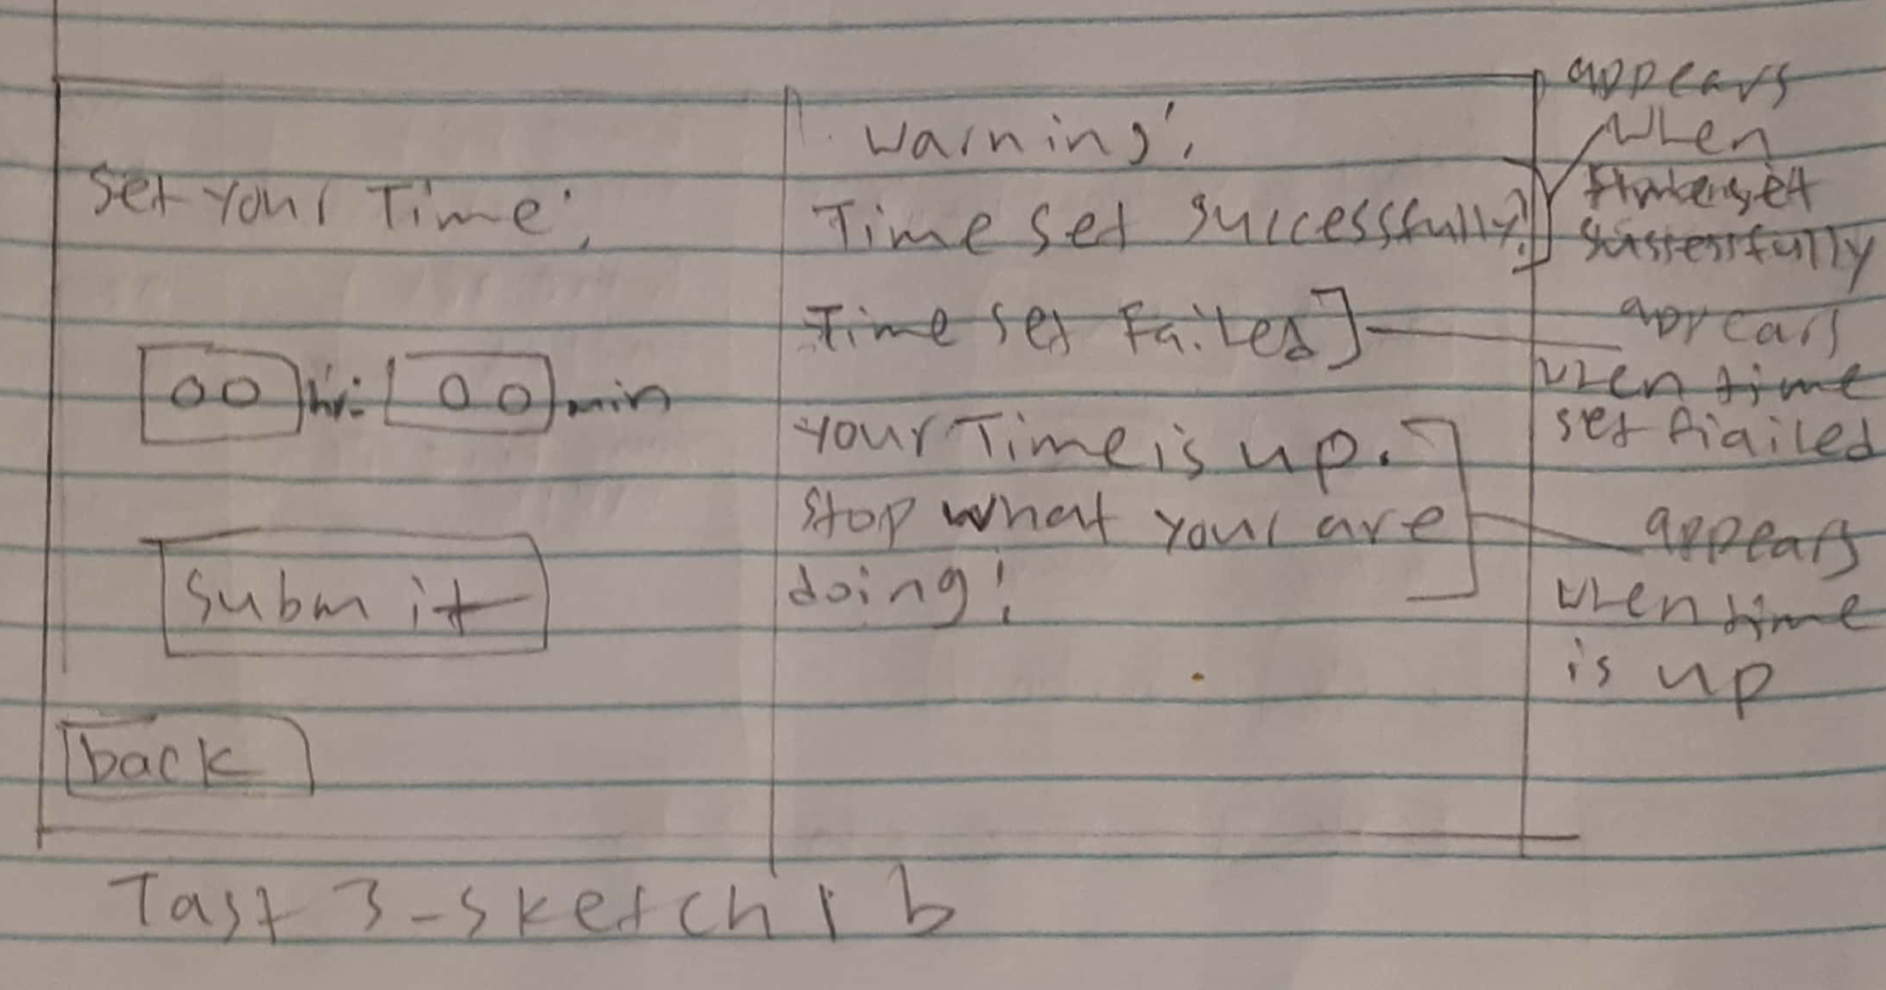 Set Your Time:
00 hr: 00 min
Submit
back
Warning!
Time set successfully!
Time set Failed
Your Time is up.
Stop what your are
doing!
appears
when
sussessfully
appears
when time
set fiailed
appears
when time
is up
Tast 3-sketch 1 b